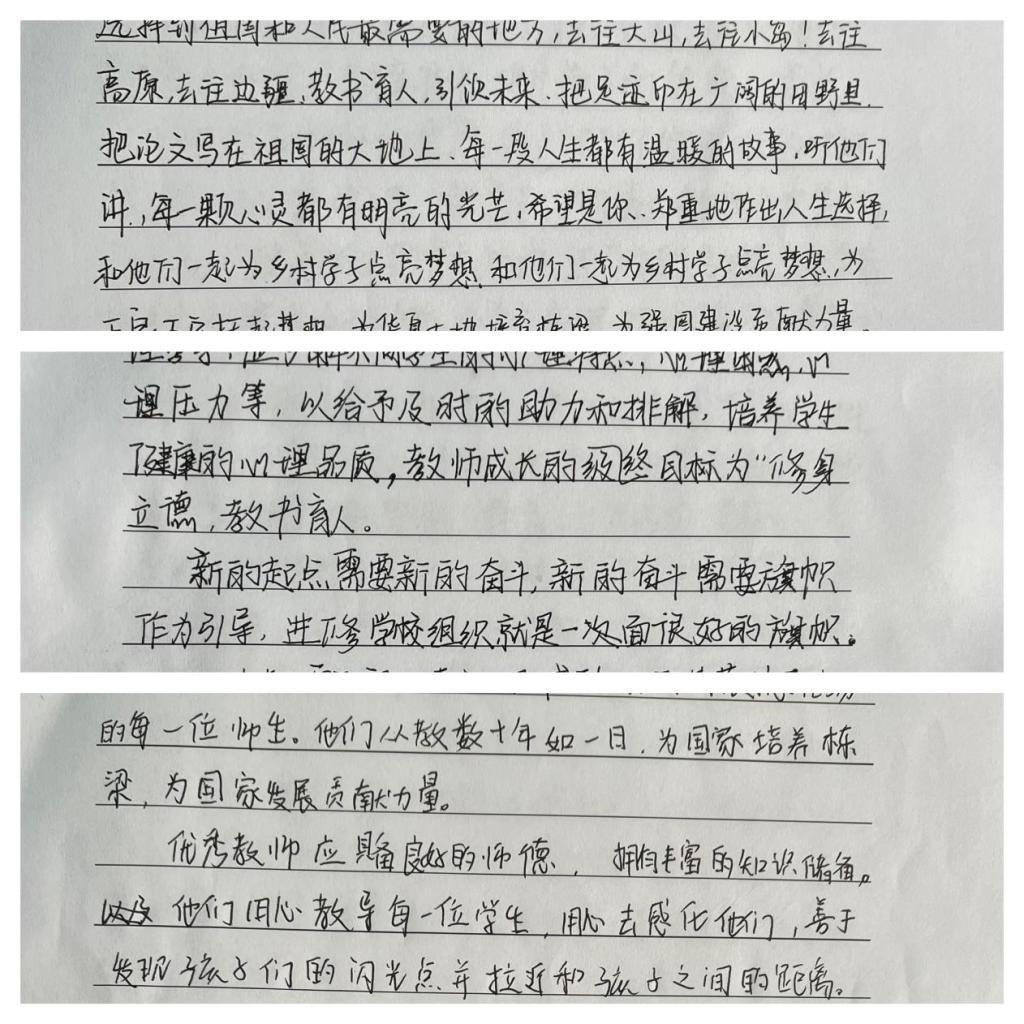 选择到祖国和人民最需要的地方,去往大山,去往小岛!去往
高原,去往边疆,教书育人,引领未来.把足迹印在广阔的田野里.
把论文写在祖国的大地上、每一段人生都有温暖的故事,听他们
讲,每一颗心灵都有明亮的光芒,希望是你、郑重地作出人生选择,
和他们一起为乡村学子点亮梦想 和他们一起为乡村学子点亮梦想,为
为强国建设贡献力量。
心理困惑,心
理压力等,以给予及时的助力和排解,培养学生
健康的心理品质,教师成长的级终目标为“修身
立德,教书育人。
新的起点需要新的奋斗,新的奋斗需要旗帜
作为引导,进修学校组织就是一次面很好的旗帜。
的每一位师生。他们从教数十年如一日,为国家培养栋
梁,为国家发展贡献力量。
优秀教师应具备良好的师德, 拥有丰富的知识储备。
他们用心教导每一位学生,用心去感化他们,善于
发现孩子们的闪光点并拉近和孩子之间的距离。